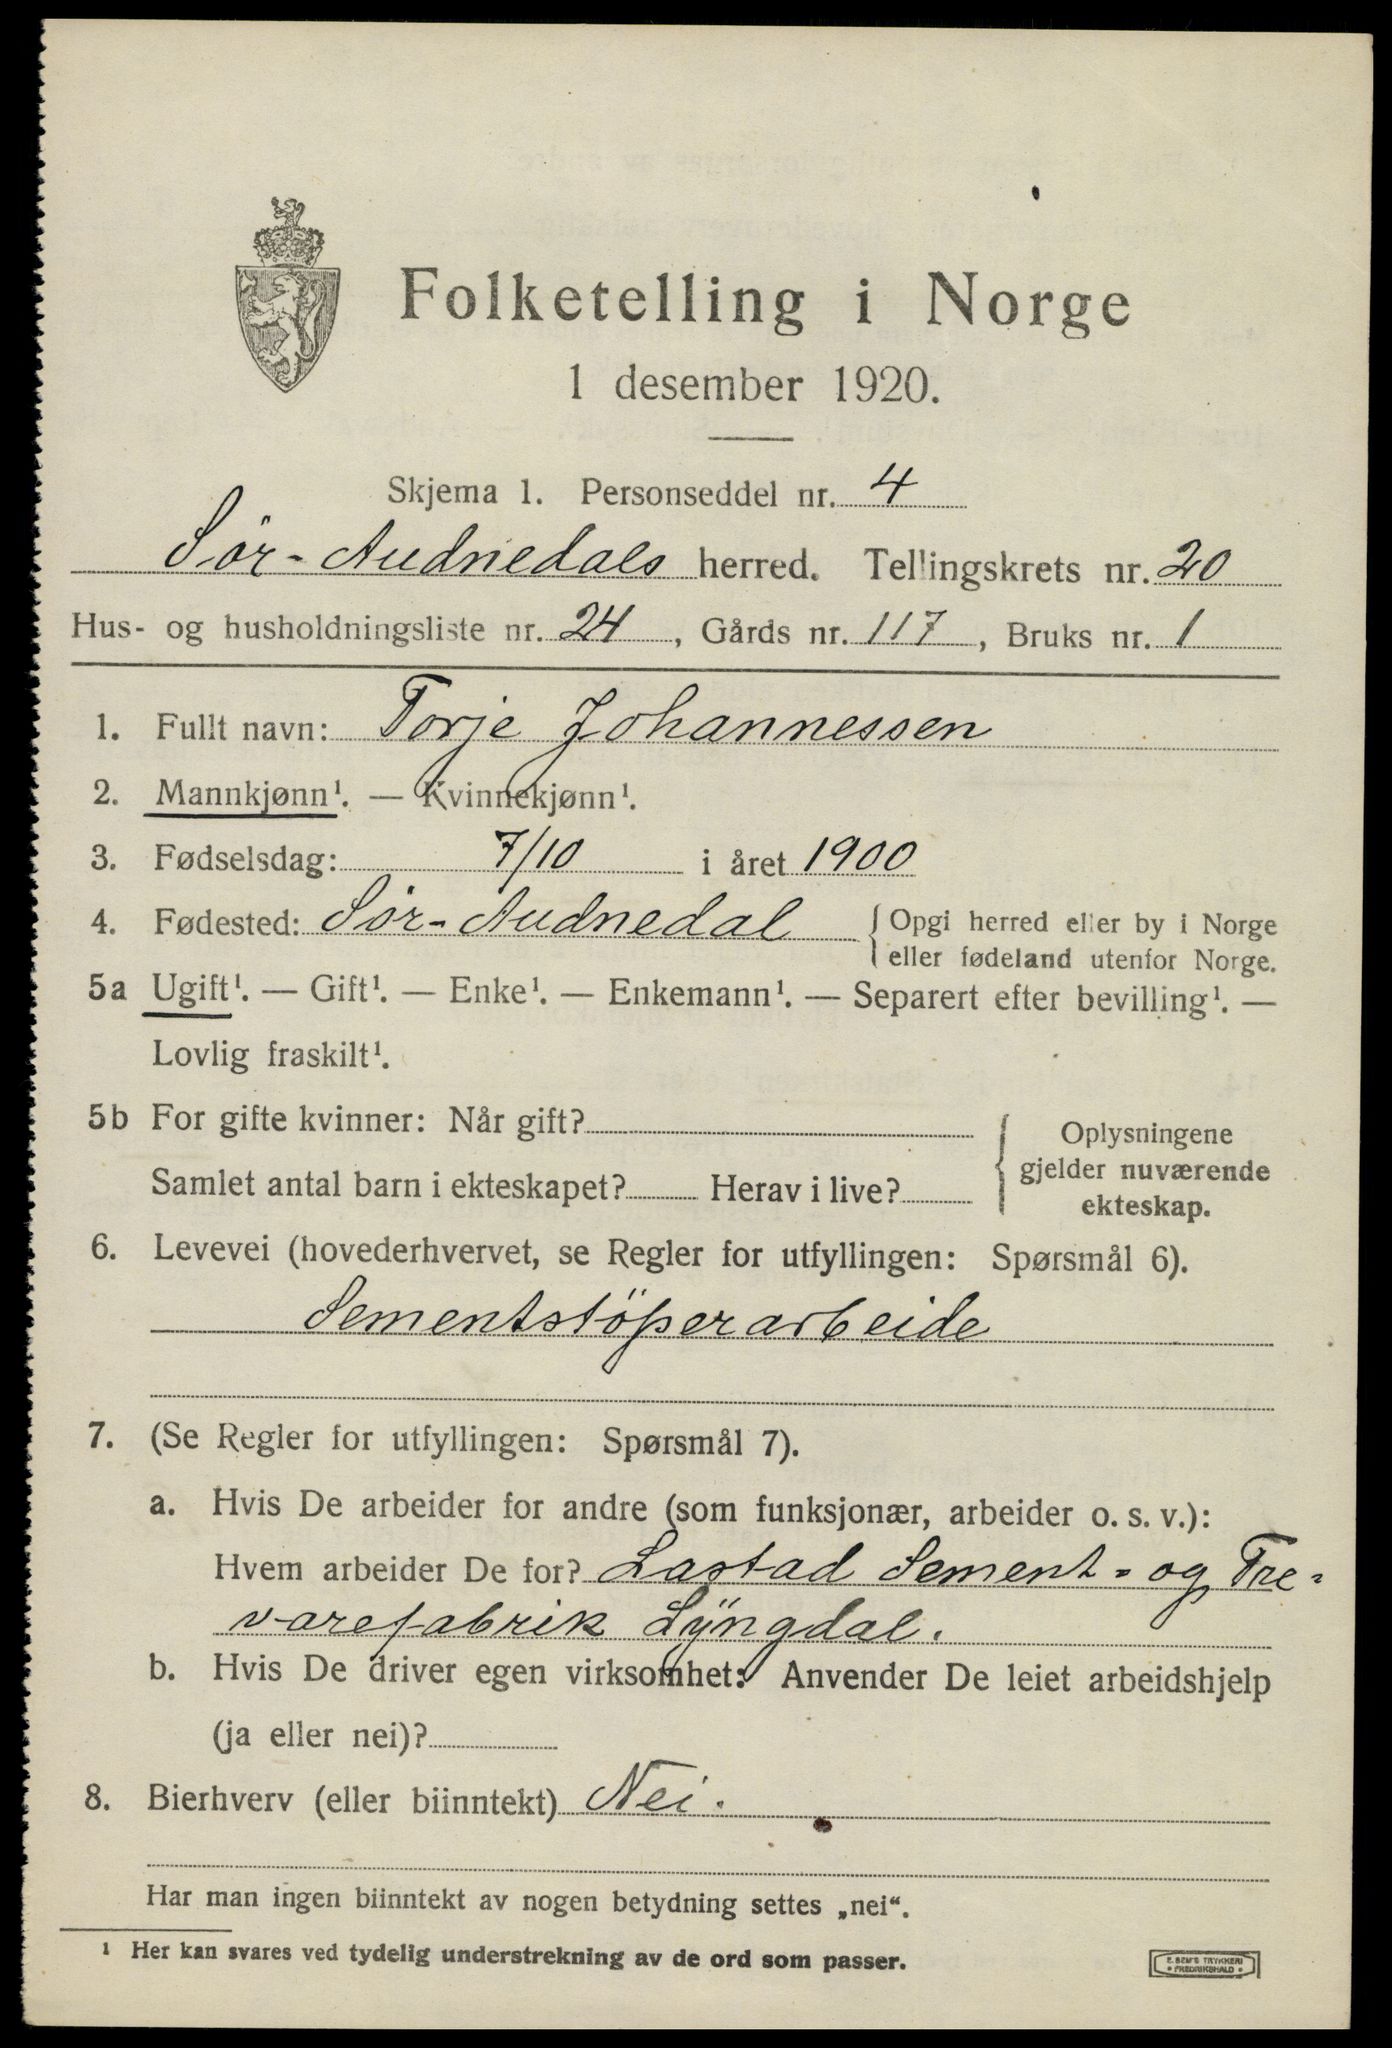 Folketelling i Norge
1 desember 1920.
Skjema 1. Personseddel nr. 4
Sør-Audnedals herred. Tellingskrets nr. 20
Hus- og husholdningsliste nr. 24, Gårds nr. 117, Bruks nr. 1
1. Fullt navn: Torje Johannessen
2. Mannkjønn¹. — Kvinnekjønn¹.
3. Fødselsdag: 7/10 i året 1900
4. Fødested: Sør-Audnedal { Opgi herred eller by i Norge
eller fødeland utenfor Norge.
5a Ugift¹. — Gift¹. — Enke¹. — Enkemann¹. — Separert efter bevilling¹. —
Lovlig fraskilt¹.
5b For gifte kvinner: Når gift?
Samlet antal barn i ekteskapet? Herav i live?
Oplysningene
gjelder nuværende
ekteskap.
6. Levevei (hovederhvervet, se Regler for utfyllingen: Spørsmål 6).
Sementstöperarbeide
7. (Se Regler for utfyllingen: Spørsmål 7).
a. Hvis De arbeider for andre (som funksjonær, arbeider o. s. v.):
Hvem arbeider De for? Lastad Sement- og Tre-
varefabrik Lÿngdal.
b. Hvis De driver egen virksomhet: Anvender De leiet arbeidshjelp
(ja eller nei)?
8. Bierhverv (eller biinntekt) Nei.
Har man ingen biinntekt av nogen betydning settes „nei“.
¹ Her kan svares ved tydelig understrekning av de ord som passer.
E. SEM'S TRYKKERI
• FREDRIKSHALD •